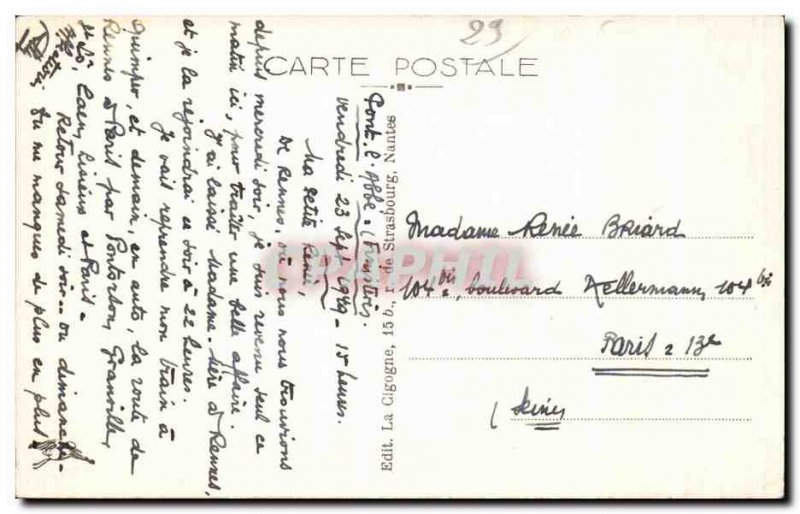 29
CARTE POSTALE
Pont-l'Abbé - (Finistère).
Vendredi 23 Sept 1949 - 15 heures.
Ma petite René,
De Rennes, où nous nous trouvions
depuis mercredi soir, je suis revenu seul ce
matin ici, pour traiter une belle affaire.
J'ai laissé Madame. Mère à Rennes,
et je la rejoindrai ce soir à 22 heures.
Je vais reprendre mon train à
Quimper, et demain, en auto, la route de
Rennes à Paris par Pontorson, Granville,
St Lô, Caen, Lisieux et Paris -
Retour samedi soir.. ou dimanche.
Tu me manques de plus en plus!
Edit. La Cigogne, 15 b, de Strasbourg, Nantes
CPAPHIL
Madame Renée Briard
104 bis, boulevard Kellermann, 104 bis
Paris = 13e
(Seine)